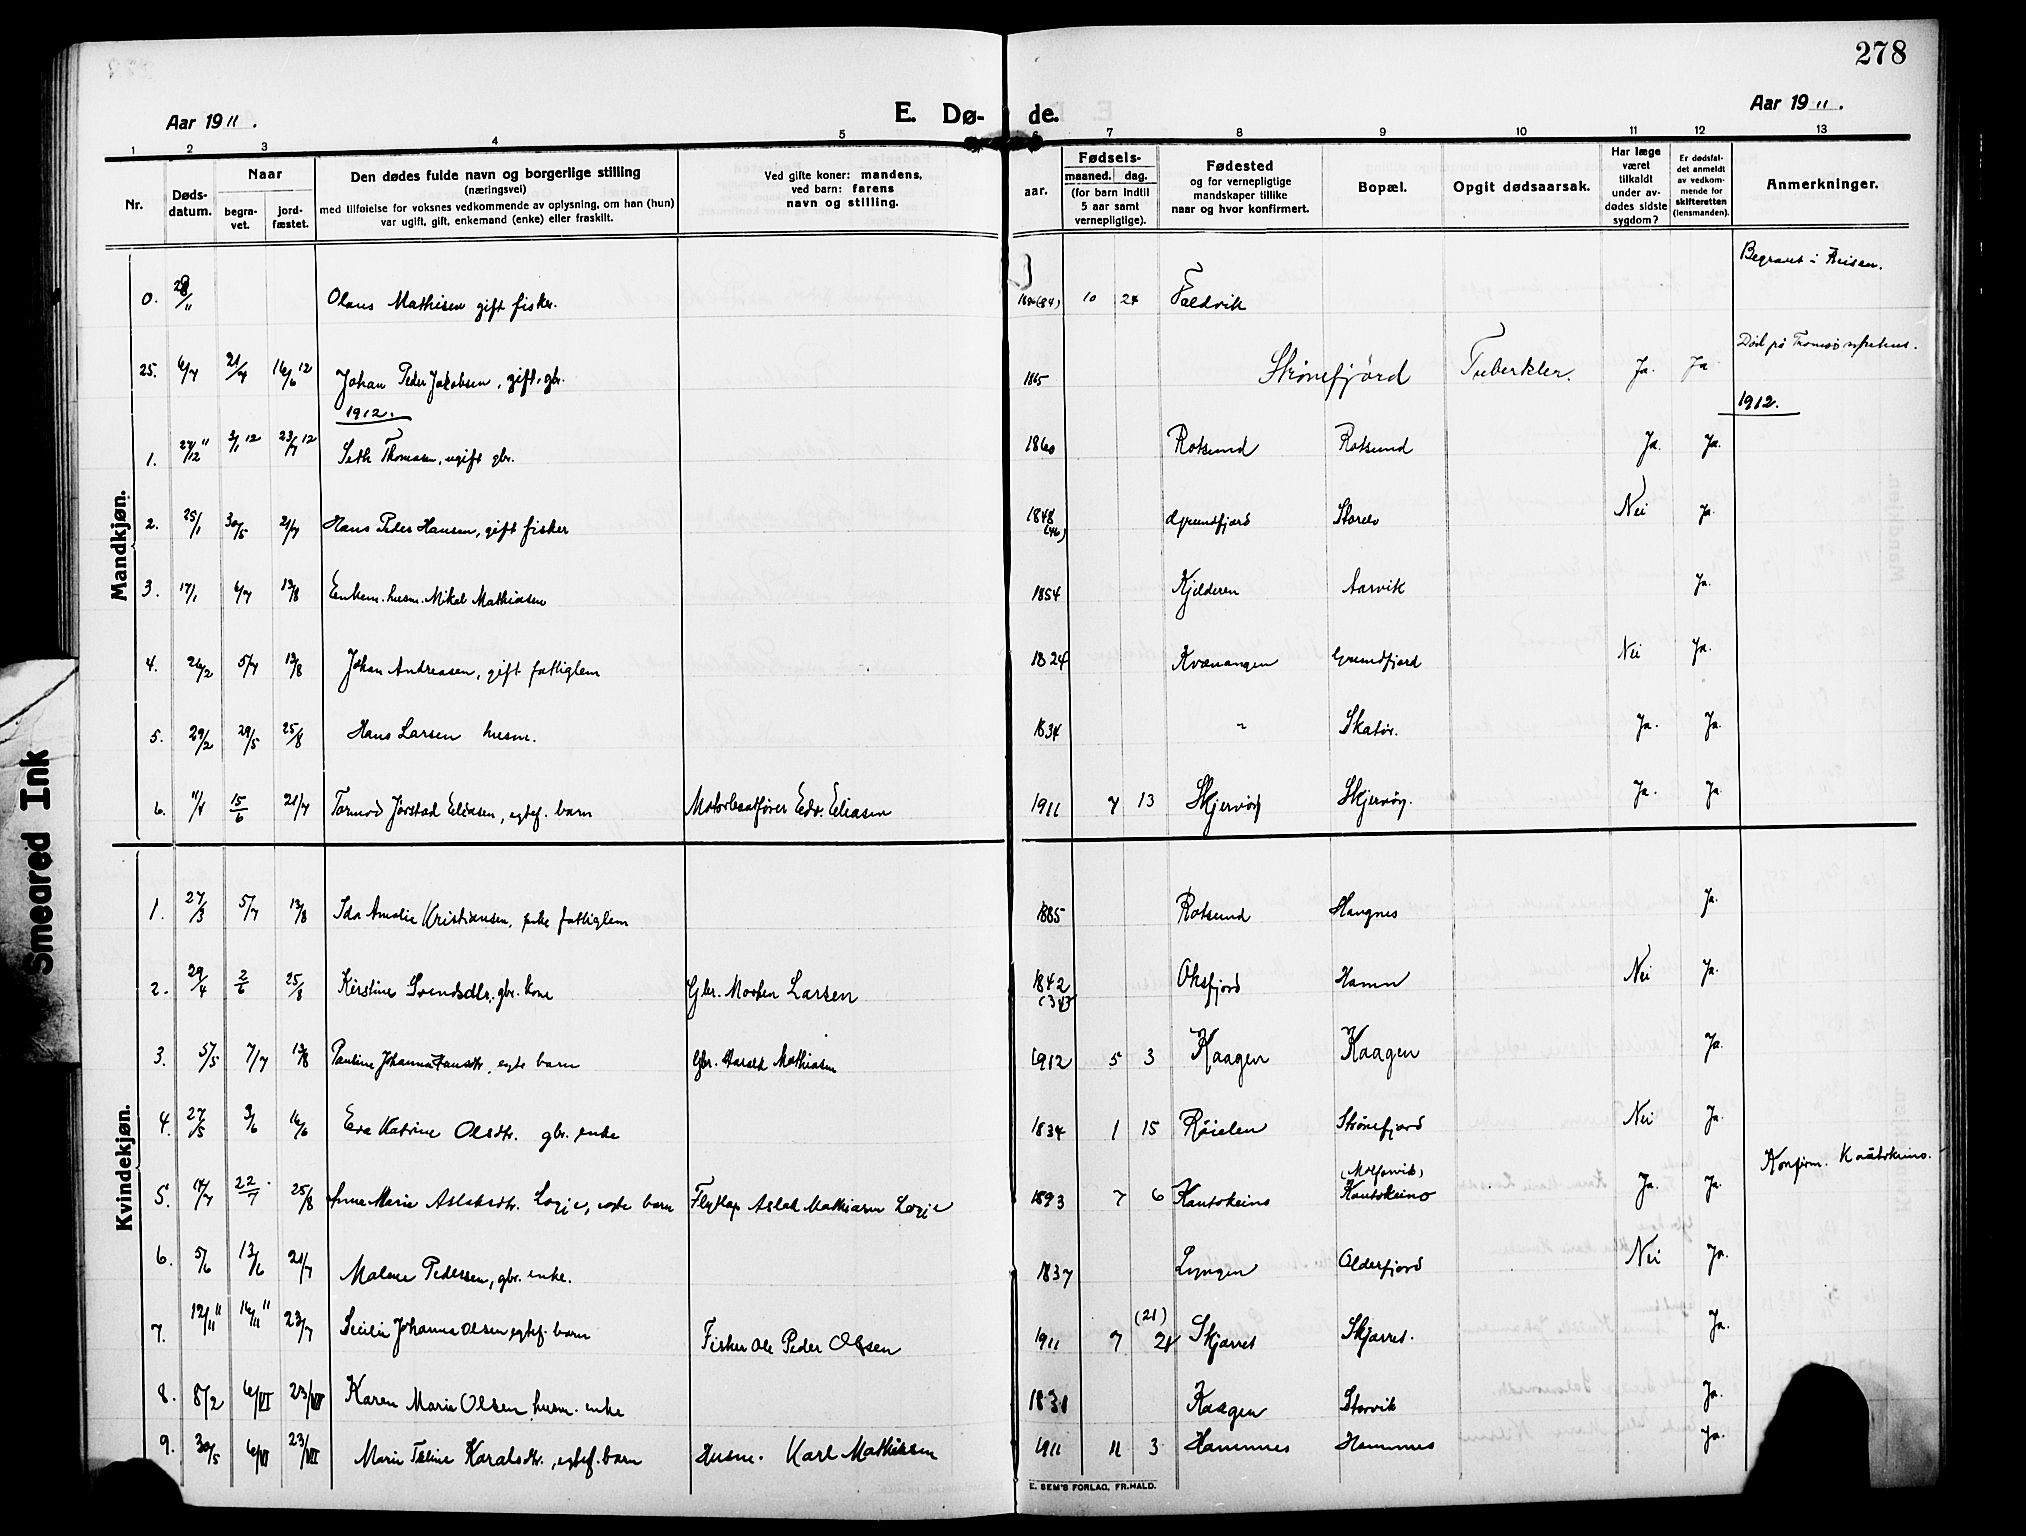 278
Aar 1911.
E. Dø- de.
Aar 1911.
1 2 3 4 5 6 7 8 9 10 11 12 13
Nr.
Dødsdatum.
Naar
begravet.
jordfæstet.
Den dødes fulde navn og borgerlige stilling
(næringsvei)
med tilføielse for voksnes vedkommende av oplysning, om han (hun)
var ugift, gift, enkemand (enke) eller fraskilt.
Ved gifte koner: mandens,
ved barn: farens
navn og stilling.
Fødsels-
aar.
maaned. dag.
(for barn indtil
5 aar samt
vernepligtige).
Fødested
og for vernepligtige
mandskaper tillike
naar og hvor konfirmert.
Bopæl.
Opgit dødsaarsak.
Har læge
været
tilkaldt
under av-
dødes sidste
sygdom?
Er dødsfal-
det anmeldt
av vedkom-
mende for
skifteretten
(lensmanden).
Anmerkninger.
Mandkjøn.
0. 28/11 Olaus Mathisen gift fisker. 10 24 Faldvik Begravet i
25. 6/7 21/7 16/6 12 Johan Peder Jakobsen, gift, gbr. 1865 Strønefjord Tuberkler. Ja. Ja Død på Tromsø sykehus.
1912. 1912.
1. 27/12 11 3/1 12 23/7 12 Seth Thomasen, ugift gbr. 1860 Rotsund Rotsund Ja. Ja.
2. 25/1 30/5 21/7 Hans Peder Hansen, gift fisker 1848 (46) Grundfjord Storelv Nei Ja.
3. 17/1 6/7 13/8 Enkem. husm. Mikal Mathiasen 1854 Kjelderen Aarvik Ja.
4. 26/2 5/7 13/8 Johan Andreasen, gift fattiglem 1824 Kvænangen Grundfjord Nei Ja.
5. 29/2 29/5 25/8 Hans Larsen husm. 1834 " Skatør. Ja. Ja.
6. 11/4 15/6 21/7 Tormod Jørstad Eliasen, egtef. barn Motorbaatfører Edv. Eliasen 1911 7 13 Skjervøy Skjervøy. Ja. Ja.
Kvindekjøn.
1. 27/3 5/7 13/8 Ida Amalie Kristiansen, enke fattiglem 1885 Rotsund Hangnes Ja.
2. 29/4 2/6 25/8 Kirstine Svendsdtr. gbr. kone Gbr. Morten Larsen 1842 (343) Oksfjord Hamn Nei Ja.
3. 5/5 7/7 13/8 Pauline Johanna, egte barn Gbr. Harald Mathiasen 1912 5 3 Kaagen Kaagen Ja.
4. 27/5 9/6 16/6 Eva Katrine Olsdtr. gbr. enke 1834 1 15 Røielen Strønefjord Nei Ja.
5. 17/7 22/7 25/8 Anna Marie Aslaksdtr. Logje, egte barn Flytlap Aslak Mathiasen Logje 1893 7 6 Kautokeino Kautokeino Ja. Ja. Konfirm. Kautokeino.
6. 5/6 13/6 21/7 Malene Pedersen, gbr. enke. 1837 Lyngen Olderfjord Nei Ja.
7. 12/11 11 16/11 11 23/7 Secilie Johanna Olsen egtef. barn Fisker Ole Peder Olsen 1911 7 (21) 21 Skjarret Skjarret. Ja.
8. 8/2 6/VI 23/VII Karen Marie Olsen husm. enke 1831 Kaagen Storvik Ja.
9. 30/5 6/VI 23/VII Marie Karalsdtr., egtef. barn Husm. Karl Mathiasen 1911 11 3 Hamnnes Hamnnes Ja.
E. SEM'S FORLAG, FR.HALD.
Smeared Ink